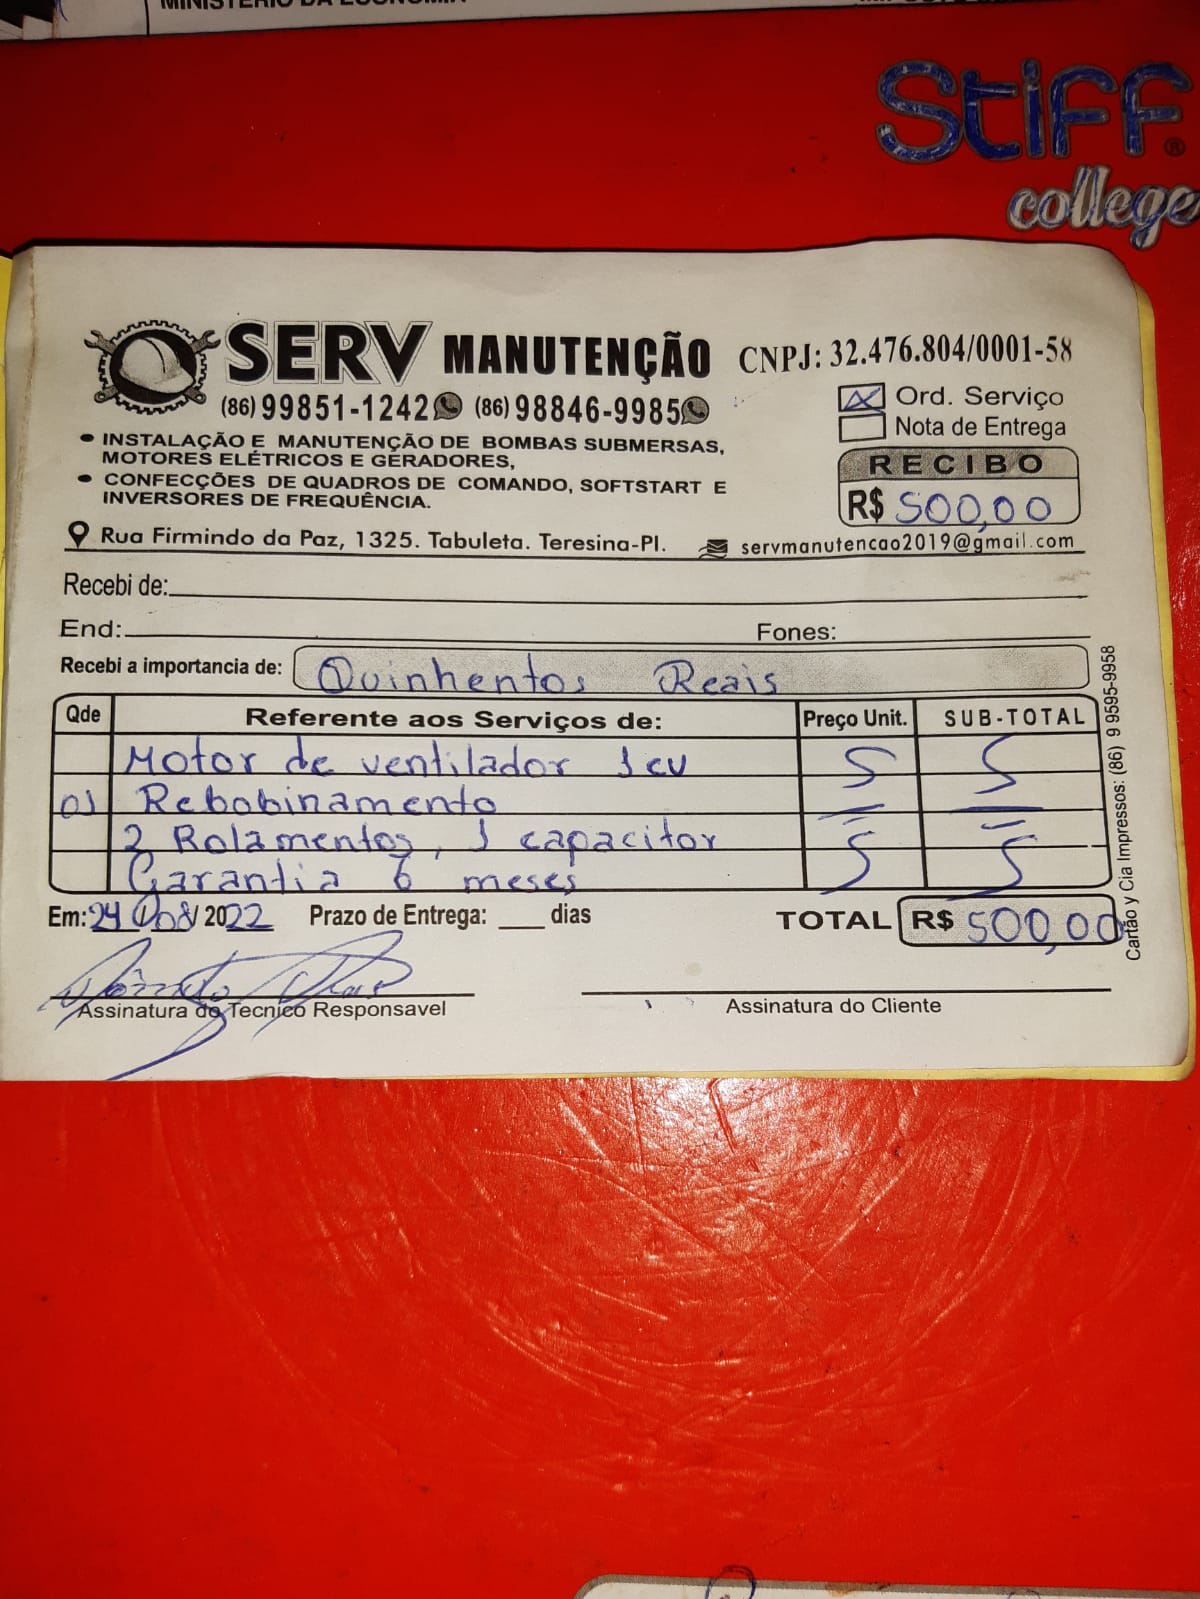 MINISTÉRIO DA ECONOMIA
Stiff®
college
SERV MANUTENÇÃO CNPJ: 32.476.804/0001-58
(86) 99851-1242 (86) 98846-9985
Ord. Serviço
Nota de Entrega
• INSTALAÇÃO E MANUTENÇÃO DE BOMBAS SUBMERSAS,
MOTORES ELÉTRICOS E GERADORES,
• CONFECÇÕES DE QUADROS DE COMANDO, SOFTSTART E
INVERSORES DE FREQUÊNCIA.
RECIBO
R$ 500,00
Rua Firmindo da Paz, 1325. Tabuleta. Teresina-PI. servmanutencao2019@gmail.com
Recebi de:
End: Fones:
Recebi a importancia de: Quinhentos Reais
Qde Referente aos Serviços de: Preço Unit. SUB-TOTAL
Motor de ventilador 1 cv
01 Rebobinamento
2 Rolamentos, 1 capacitor
Garantia 6 meses
Em: 24/08/2022 Prazo de Entrega: ___ dias TOTAL R$ 500,00
Assinatura do Tecnico Responsavel Assinatura do Cliente
Cartão y Cia Impressos: (86) 9 9595-9958